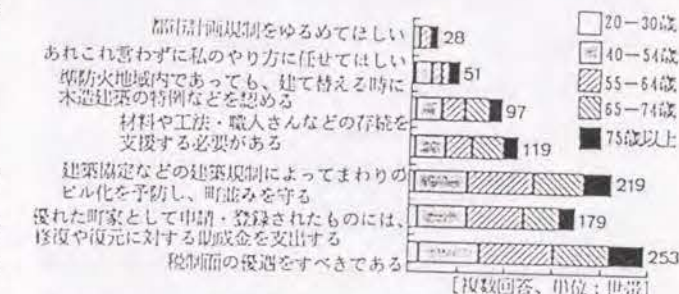 都市計画規制をゆるめてほしい 28
あれこれ言わずに私のやり方に任せてほしい 51
準防火地域内であっても、建て替える時に
木造建築の特例などを認める 97
材料や工法・職人さんなどの存続を
支援する必要がある 119
建築協定などの建築規制によってまわりの
ビル化を予防し、町並みを守る 219
優れた町家として申請・登録されたものには、
修復や復元に対する助成金を支出する 179
税制面の優遇をすべきである 253
[複数回答、単位：世帯]
20－30歳
40－54歳
55－64歳
65－74歳
75歳以上